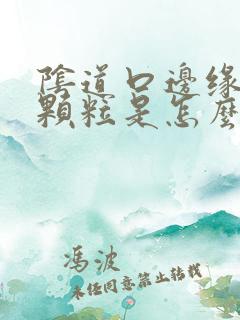 陰道口邊緣
顆粒是怎麼
馮波
未經同意禁止轉載